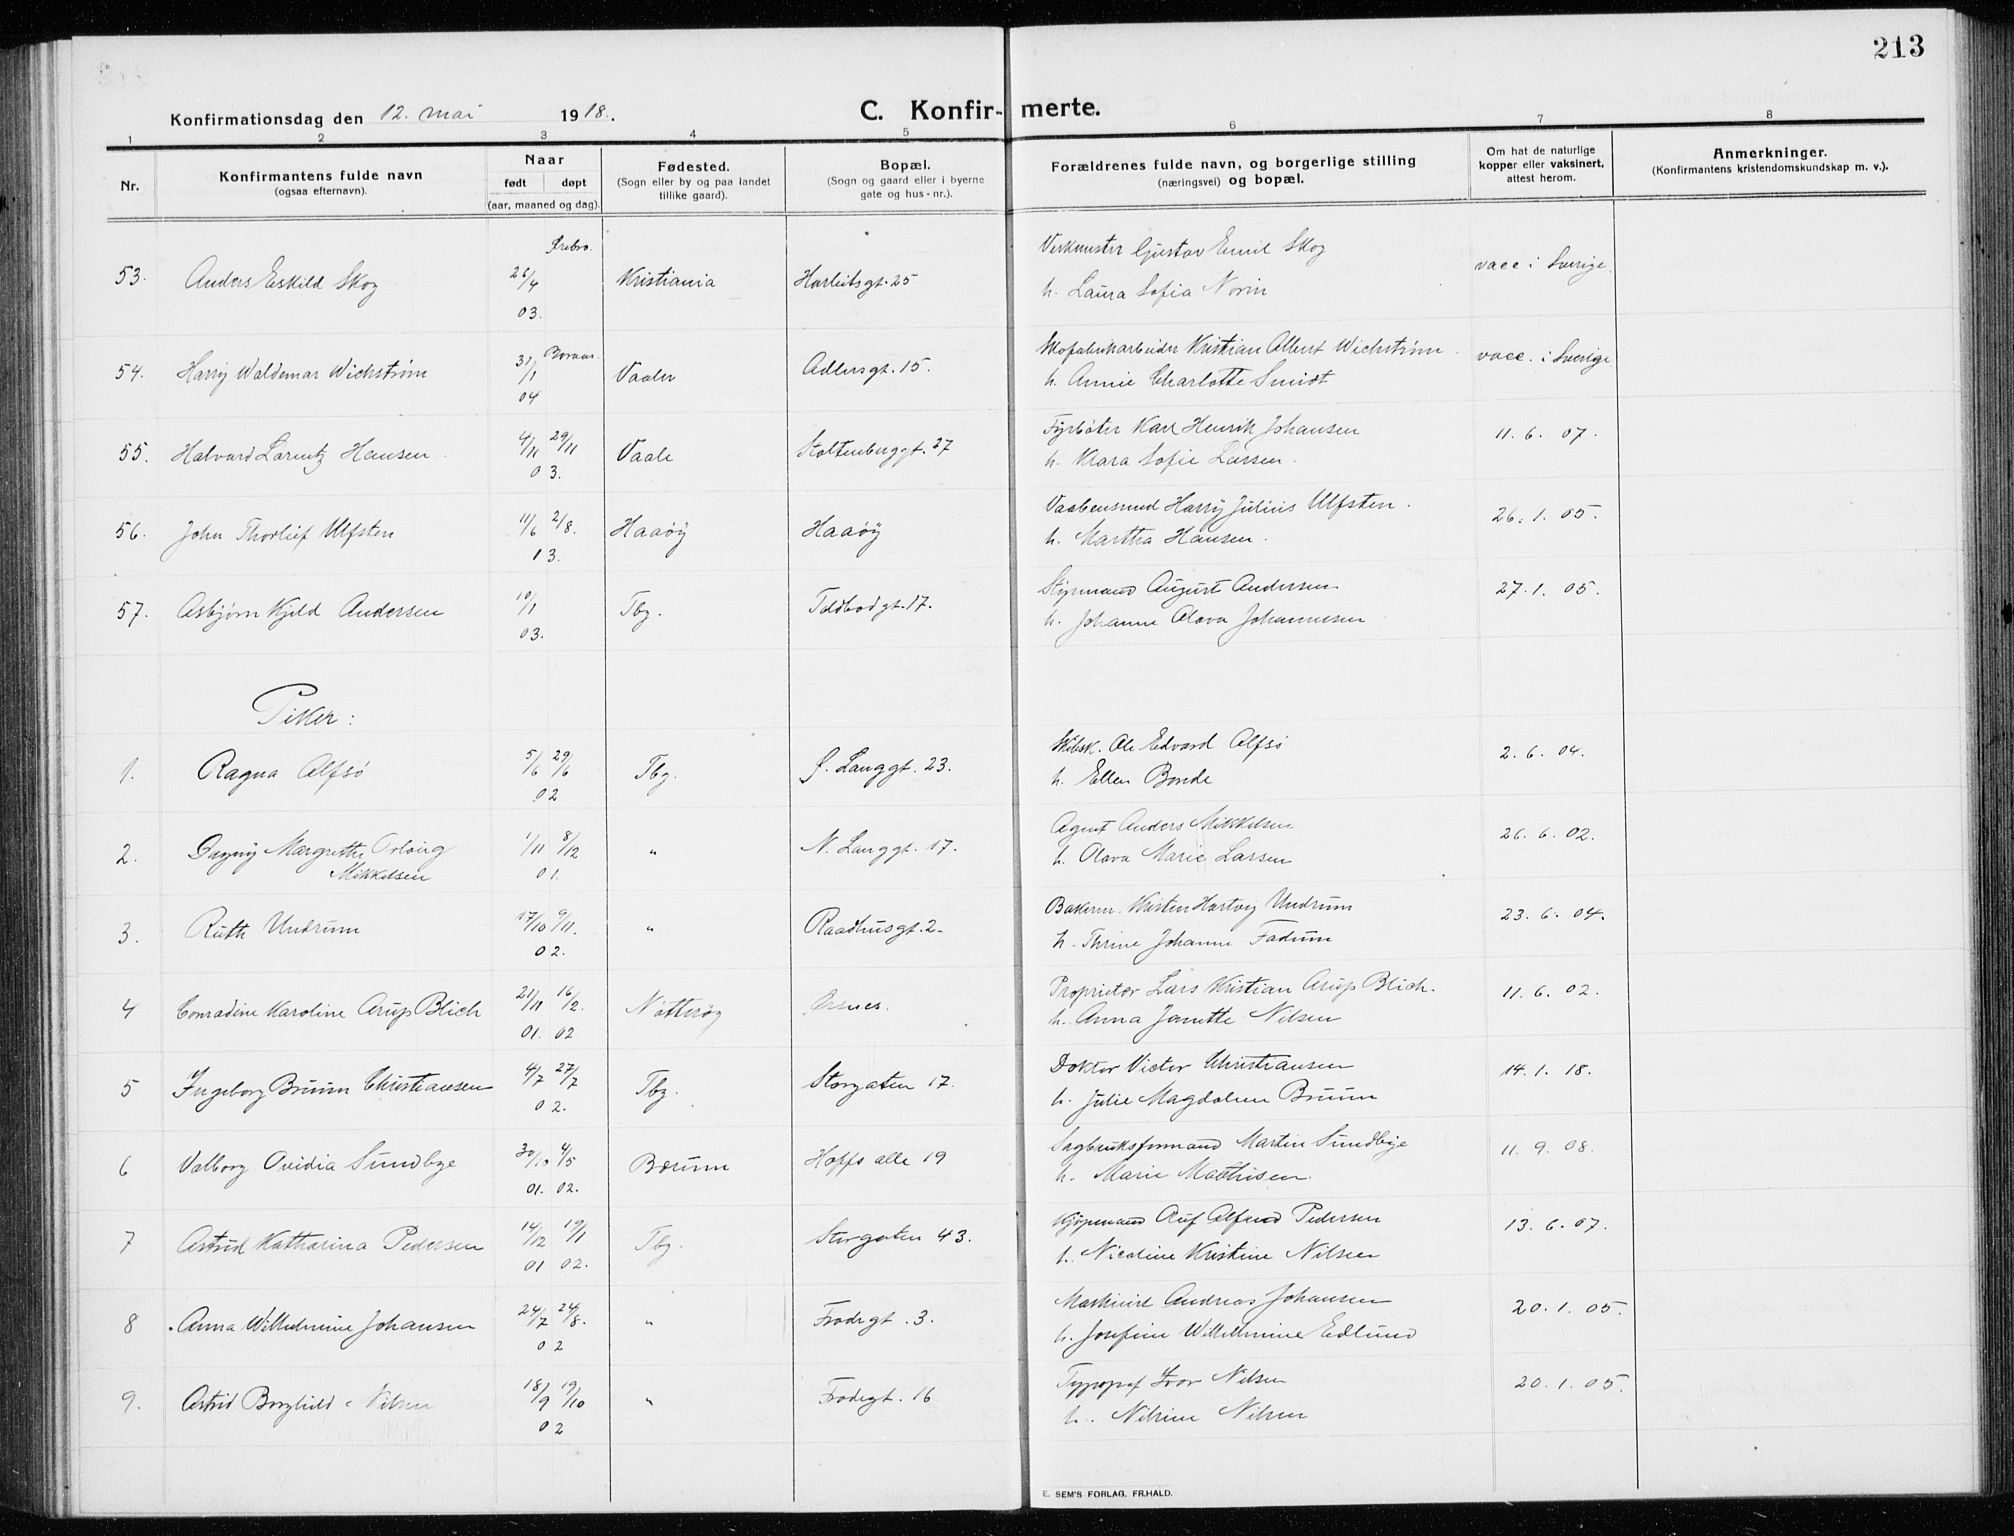 213
Konfirmationsdag den 12. mai 1918.
C. Konfirmerte.
1 2 3 4 5 6 7 8
Nr.
Konfirmantens fulde navn
(ogsaa efternavn).
Naar
født døpt
(aar, maaned og dag).
Fødested.
(Sogn eller by og paa landet
tillike gaard).
Bopæl.
(Sogn og gaard eller i byerne
gate og hus-nr.).
Forældrenes fulde navn, og borgerlige stilling
(næringsvei) og bopæl.
Om hat de naturlige
kopper eller vaksinert,
attest herom.
Anmerkninger.
(Konfirmantens kristendomskundskap m. v.).
53. Anders Eskild Skog 26/4 03. Ørebro. Kristiania Harleitsgt. 25
Verkmester Gustav Emil Skog
h. Laura Sofia Norin
vacc i Sverige.
54. Harry Waldemar Wichstrøm 31/1 04 Boraas. Vaaler Adlersgt. 15.
Skofabrikarbeider Kristian Albert Wichstrøm
h. Annie Charlotte Smidt
vacc. i Sverige
55. Halvard Larentz Hansen. 4/11 29/11 03. Vaale Stoltenberggt. 27
Fyrbøter Karl Henrik Johansen
h. Klara Sofie Larsen.
11. 6. 07.
56. John Thorleif Ulfsten 11/6 2/8. 13. Haaøy Haaøy
Vaabensmed Harry Julius Ulfsten.
h. Martha Hansen.
26. 1. 05.
57. Asbjørn Kjeld Andersen 10/1 03. Tbg. Toldbodgt. 17.
Styrmand August Andersen
h. Johanne Olava Johannesen
27. 1. 05.
Piker:
1. Ragna Alfsø 5/6 29/6 02 Tbg. S. Langgt. 23.
Skibsk. Ole Edvard Alfsø
h. Ellen Bonde
2. 6. 04.
2. Dagny Margrethe Orloug
Mikkelsen 1/11 8/12 01. " N. Langgt. 17.
Agent Anders Mikkelsen
h. Olava Marie Larsen
26. 6. 02.
3. Ruth Undrum 17/10 9/11. 02. " Raadhusgt. 2.
Bakerm. Kristen Hartvig Undrum
h. Thrine Johanne Fadum
23. 6. 04.
4 Conradine Karoline Arup Blich 21/11 16/2. 01. 02 Nøtterøy Ørsnes.
Proprietær Lars Kristian Arup Blich.
h. Anna Janette Nilsen
11. 6. 02.
5 Ingeborg Bruun Christiansen 4/7 27/7 02. Tbg. Storgaten 17.
Doktor Victor Christiansen
h. Julie Magdalene Bruun
14. 1. 18.
6 Valborg Ovidia Sundbye 30/10 4/5 01. 02. Bærum Hopfs alle 19
Sagbruksformand Martin Sundbye
h. Marie Mathisen.
11. 9. 08.
7 Astrid Katharina Pedersen 14/12 19/1 01 02. Tbg. Storgaten 43.
Kjøpmand Alf Alfred Pedersen
h. Nicoline Kristine Nilsen
13. 6. 07.
8 Anna Wilhelmine Johansen 24/7 24/8. 02 " Frodegt. 3.
Maskinist Andreas Johansen
h. Josefine Wilhelmine Edlund
20. 1. 05.
9. Astrid Borghild Nilsen 18/9 19/10 02 " Frodegt. 16
Typograf Ivor Nilsen
h. Nilsine Nilsen
20. 1. 05.
E. SEM'S FORLAG, FR.HALD.